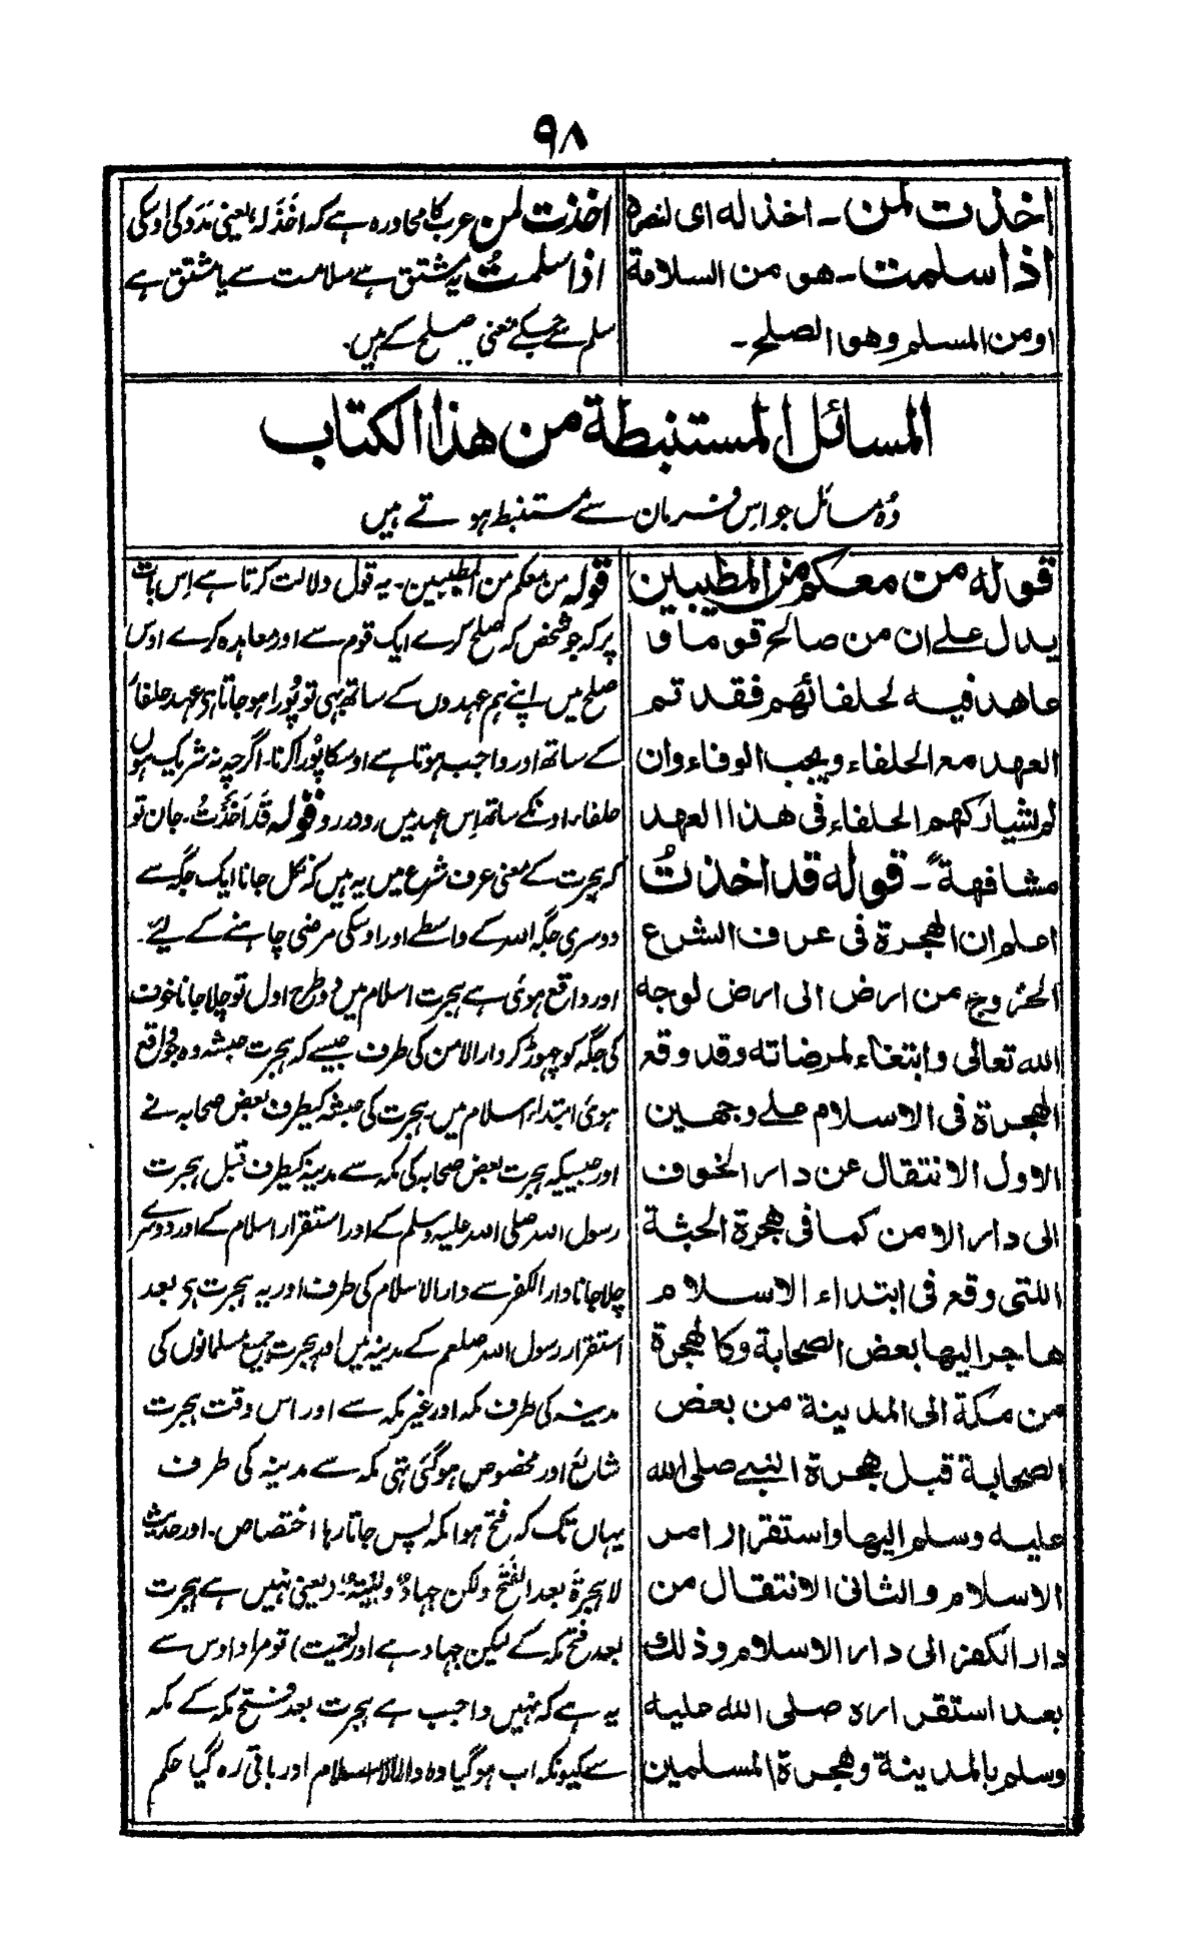 ٩٨
اخذت لمن ۔ اخذ له ای لنصره
اذا سلمت ۔ هو من السلامة
او من المسلم وهو الصلح ۔
اخذت لمن عرب کا محاورہ ہے کہ اَخَذَ لہٗ یعنی مَدَد کی اوسکی
اذا سلمتُ یہ مشتق ہے سلامت سے یا مشتق ہے
سلم سے جسکے معنی صلح کے ہیں.
المسائل المستنبطة من هذا الكتاب
وُہ مسائل جو اس فرمان سے مستنبط ہوتے ہیں
قوله من معكم من المطيبين
يدل على ان من صالح قوما و
عاهد فيه لحلفائهم فقد تم
العهد مع الحلفاء ويجب الوفاء وان
لم يشاركهم الحلفاء فى هذا العهد
مشافهةً ۔ قوله قد اخذتُ
اعلم ان الهجرة فى عرف الشرع
الخروج من ارض الى ارض لوجه
الله تعالى وابتغاء لمرضاته وقد وقع
الهجرة فى الاسلام على وجهين
الاول الانتقال عن دار الخوف
الى دار الامن كما فى هجرة الحبشة
اللتى وقع فى ابتداء الاسلام
هاجر اليها بعض الصحابة وكالهجرة
من مكة الى المدينة من بعض
الصحابة قبل هجرة النبى صلى الله
عليه وسلم اليها واستقرار امر
الاسلام والثانى الانتقال من
دار الكفر الى دار الاسلام وذلك
بعد استقراره صلى الله عليه
وسلم بالمدينة وهجرة المسلمين
قولہ من معکم من المطیبین ۔ یہ قول دلالت کرتا ہے اِس بات
پر کہ جو شخص کہ صلح کرے ایک قوم سے اور معاہدہ کرے اوس
صلح میں اپنے ہم عہدوں کے ساتھ بھی تو پُورا ہو جاتا ہی عہد حلفاء
کے ساتھ اور واجب ہوتا ہے اوسکا پُورا کرنا۔ اگرچہ نہ شریک ہوں
حلفاء اونکے ساتھ اِس عہد میں رودررو قولہ قَد اَخَذتُ ۔ جان تو
کہ ہجرت کے معنی عرف شرع میں یہ ہیں کہ نکل جانا ایک جگہ سے
دوسری جگہ اللہ کے واسطے اور اوسکی مرضی چاہنے کے لیے ۔
اور واقع ہوئی ہے ہجرت اسلام میں دو طرح اول تو چلا جانا خوف
کی جگہ کو چھوڑ کر دار الامن کی طرف جیسے کہ ہجرت حبشہ وہ جو واقع
ہوئی ابتداء اسلام میں ہجرت کی حبشہ کیطرف بعض صحابہ نے
اور جیسیکہ ہجرت بعض صحابہ کی مکہ سے مدینہ کیطرف قبل ہجرت
رسول اللہ صلی اللہ علیہ وسلم کے اور استقرار اسلام کے اور دوسرے
چلا جانا دار الکفر سے دار الاسلام کی طرف اور یہ ہجرت ہی بعد
استقرار رسول اللہ صلعم کے مدینہ میں اور ہجرت جمیع مسلمانوں کی
مدینہ کی طرف مکہ اور غیر مکہ سے اور اس وقت ہجرت
شائع اور مخصوص ہو گئی تہی مکہ سے مدینہ کی طرف
یہاں تک کہ فتح ہوا مکہ پس جاتا رہا اختصاص ۔ اور حدیث
لا ہجرۃَ بعد الفَتْحِ ولٰکن جہادٌ ونیّۃٌ (یعنی نہیں ہے ہجرت
بعد فتح مکہ کے لیکن جہاد ہے اور نیت) تو مراد اوس سے
یہ ہے کہ نہیں واجب ہے ہجرت بعد فتح مکہ کے مکہ
سے کیونکہ اب ہو گیا وہ دار الاسلام اور باقی رہ گیا حکم